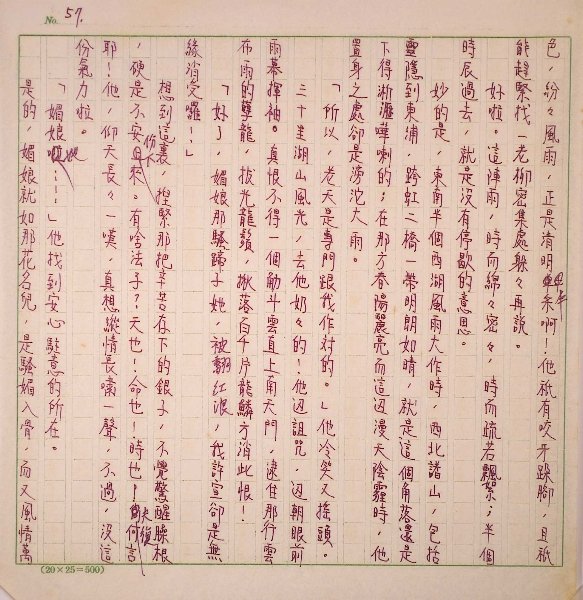 No. 57.
色,紛々風雨,正是清明時節啊!他祇有咬牙跺腳,且祇
能趕緊找一老柳密集處躲々再說。
好啦。這陣雨,時而綿々密々,時而疏若飄絮;半個
時辰過去,就是沒有停歇的意思。
妙的是,東南半個西湖風雨大作時,西北諸山,包括
靈隱到東浦,跨虹二橋一帶明明如晴,就是這個角落還是
下得淅瀝嘩喇的;在那方春陽麗亮而這迌漫天陰霾時,他
置身之處卻是滂沱大雨。
「所以,老天是專門跟我作對的。」他冷笑又搖頭。
三十里湖山風光,去他奶々的!他迌詛咒,迌朝眼前
雨幕揮袖。真恨不得一個觔斗雲直上南天門,逮住那行雲
布雨的孽龍,拔光龍鬚,揪落百千片龍鱗方消此恨!
「好了,媚娘那騷蹄子她,被翻紅浪,我許宣卻是無
緣消受囉!」
想到這裏,揑緊那把辛苦存下的銀子,不覺驚醒臊根
,硬是不安份下來。有啥法子?天也!命也!時也!夫復何言
耶!他,仰天長々一嘆,真想縱情長嘯一聲,不過,沒這
份氣力啦。
「媚娘!!」他找到安心駐意的所在。
是的,媚娘就如那花名兒,是騷媚入骨,而又風情萬
(20×25=500)